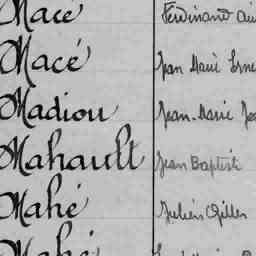 Macé Ferdinand
Macé Jean Marie
Madiou Jean-Marie
Mahault Jean Baptiste
Mahé Julien Gilles
Mahé